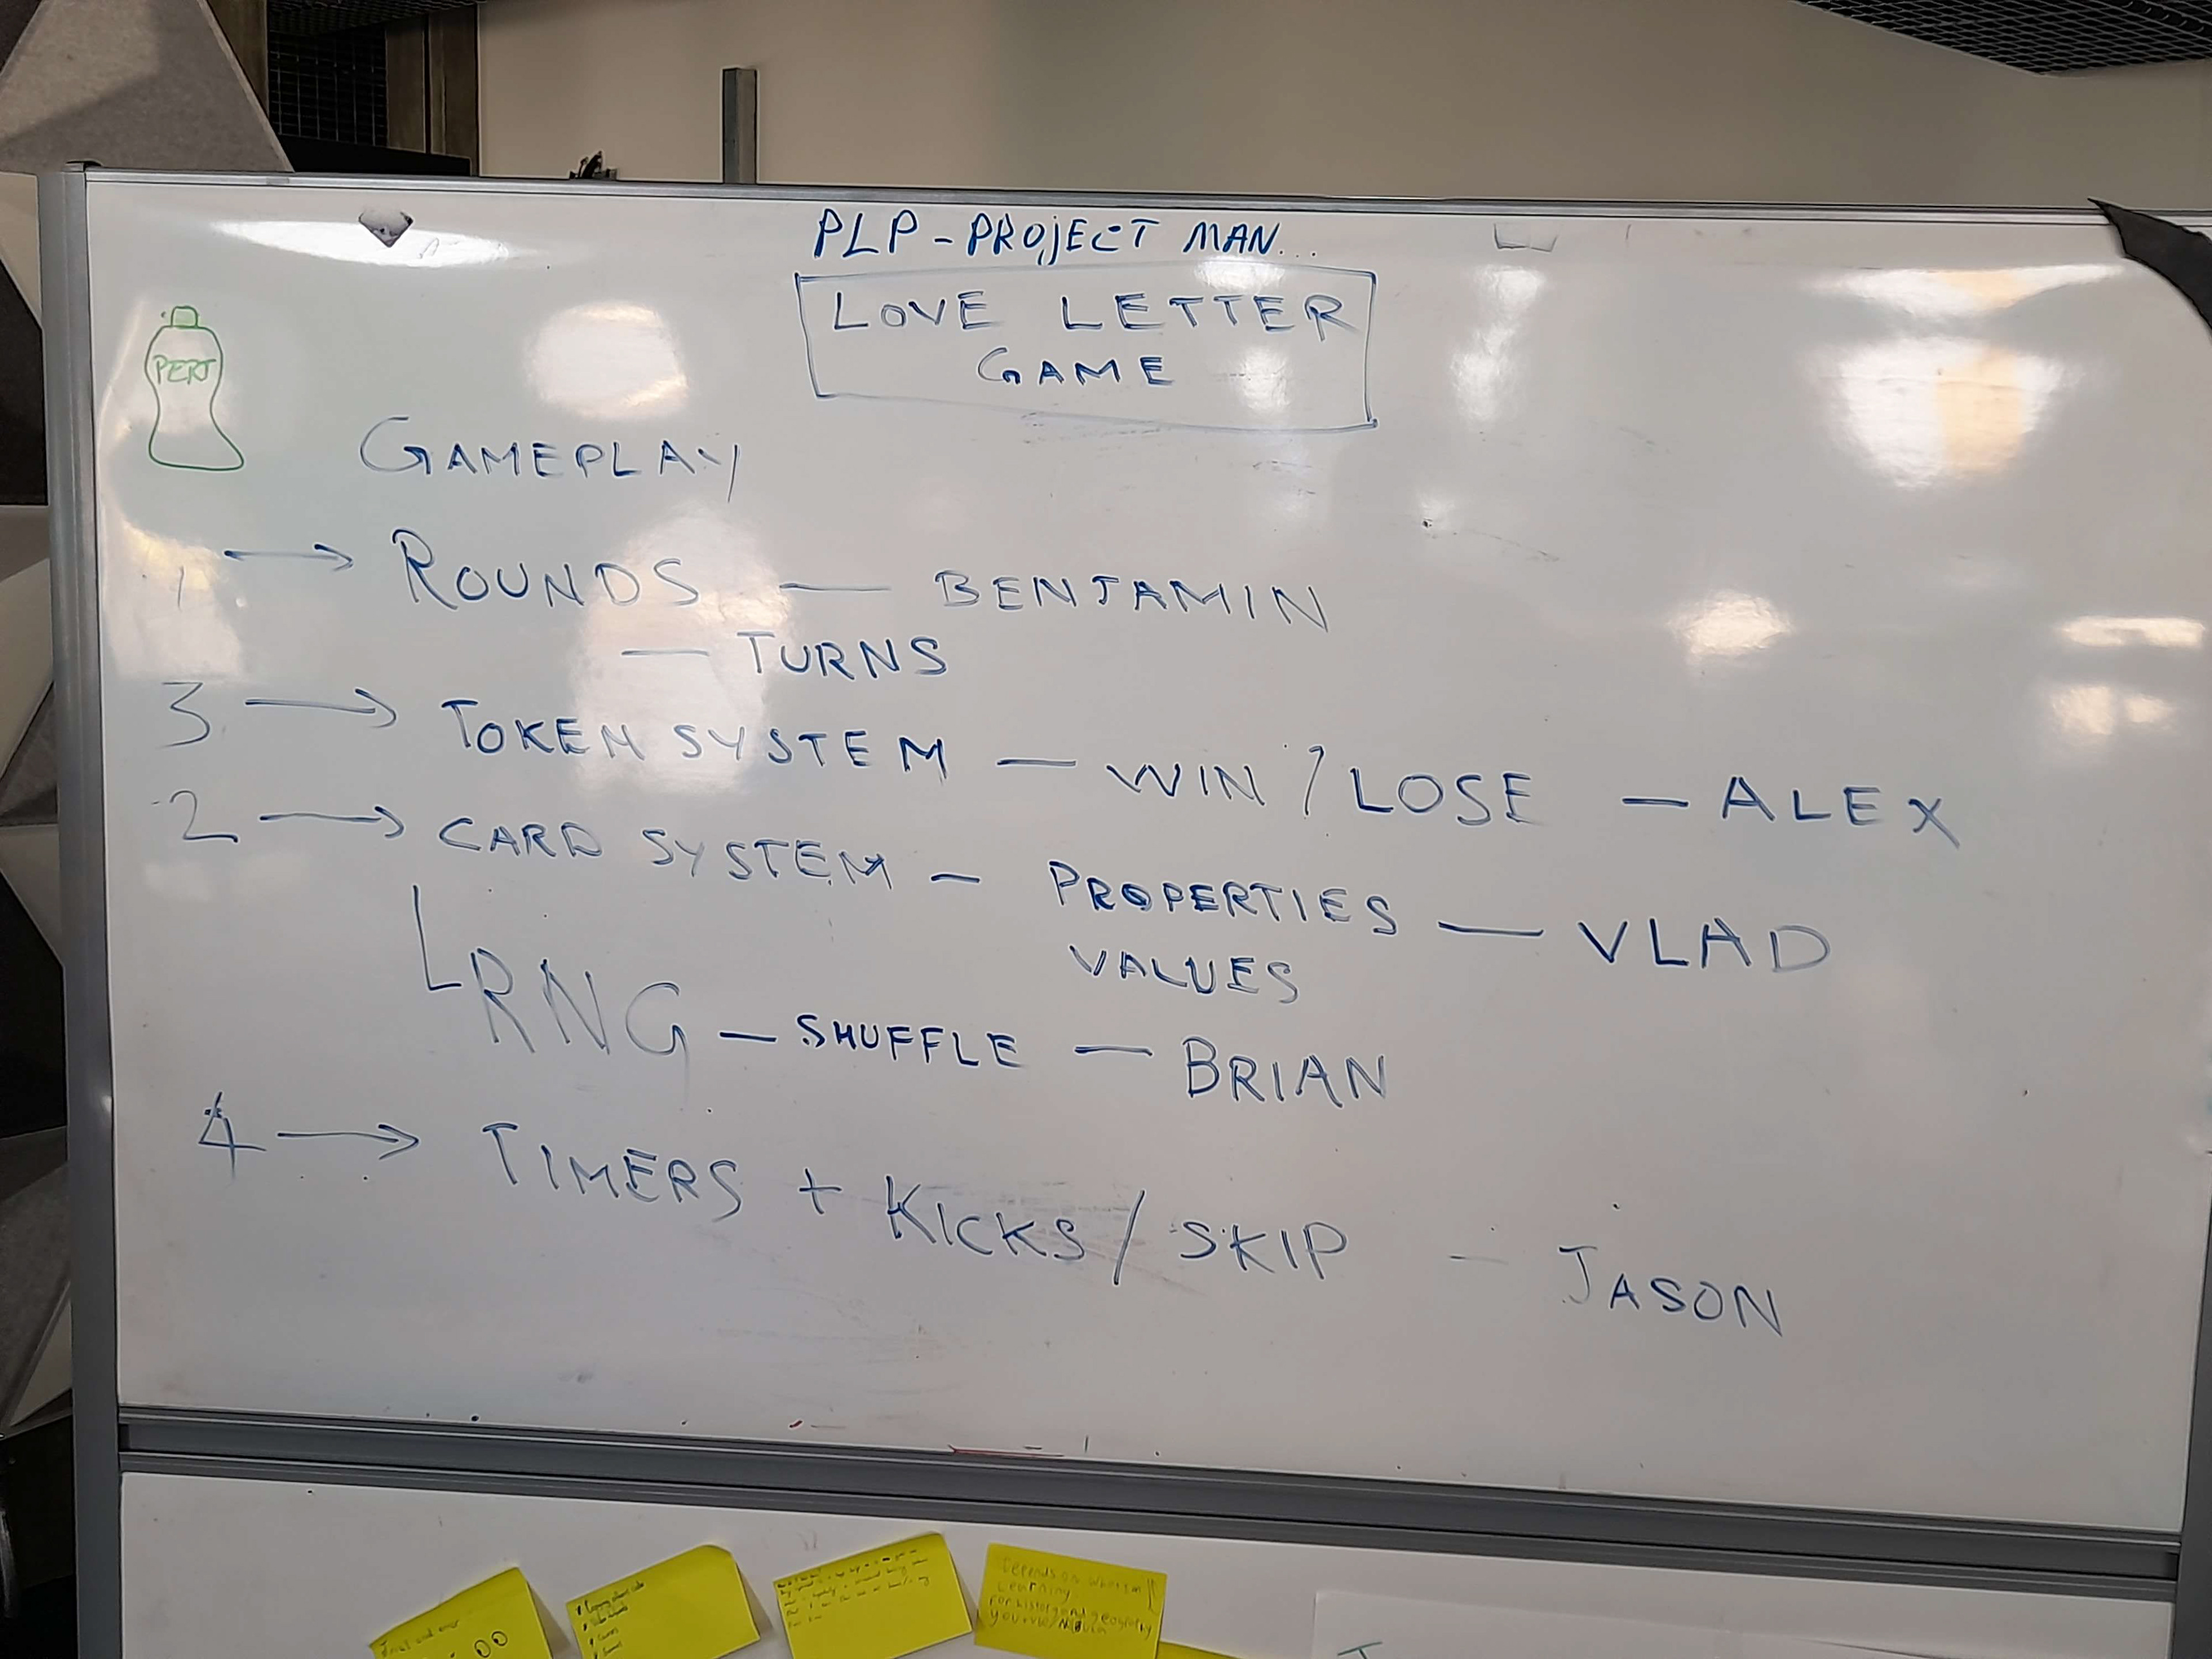 PLP - PROJECT MAN...
LOVE LETTER
GAME
PERT
GAMEPLAY
1 → ROUNDS — BENJAMIN
— TURNS
3 → TOKEN SYSTEM — WIN / LOSE — ALEX
2 → CARD SYSTEM — PROPERTIES — VLAD
VALUES
RNG — SHUFFLE — BRIAN
4 → TIMERS + KICKS / SKIP — JASON
Depends on
Learning
For history and geography